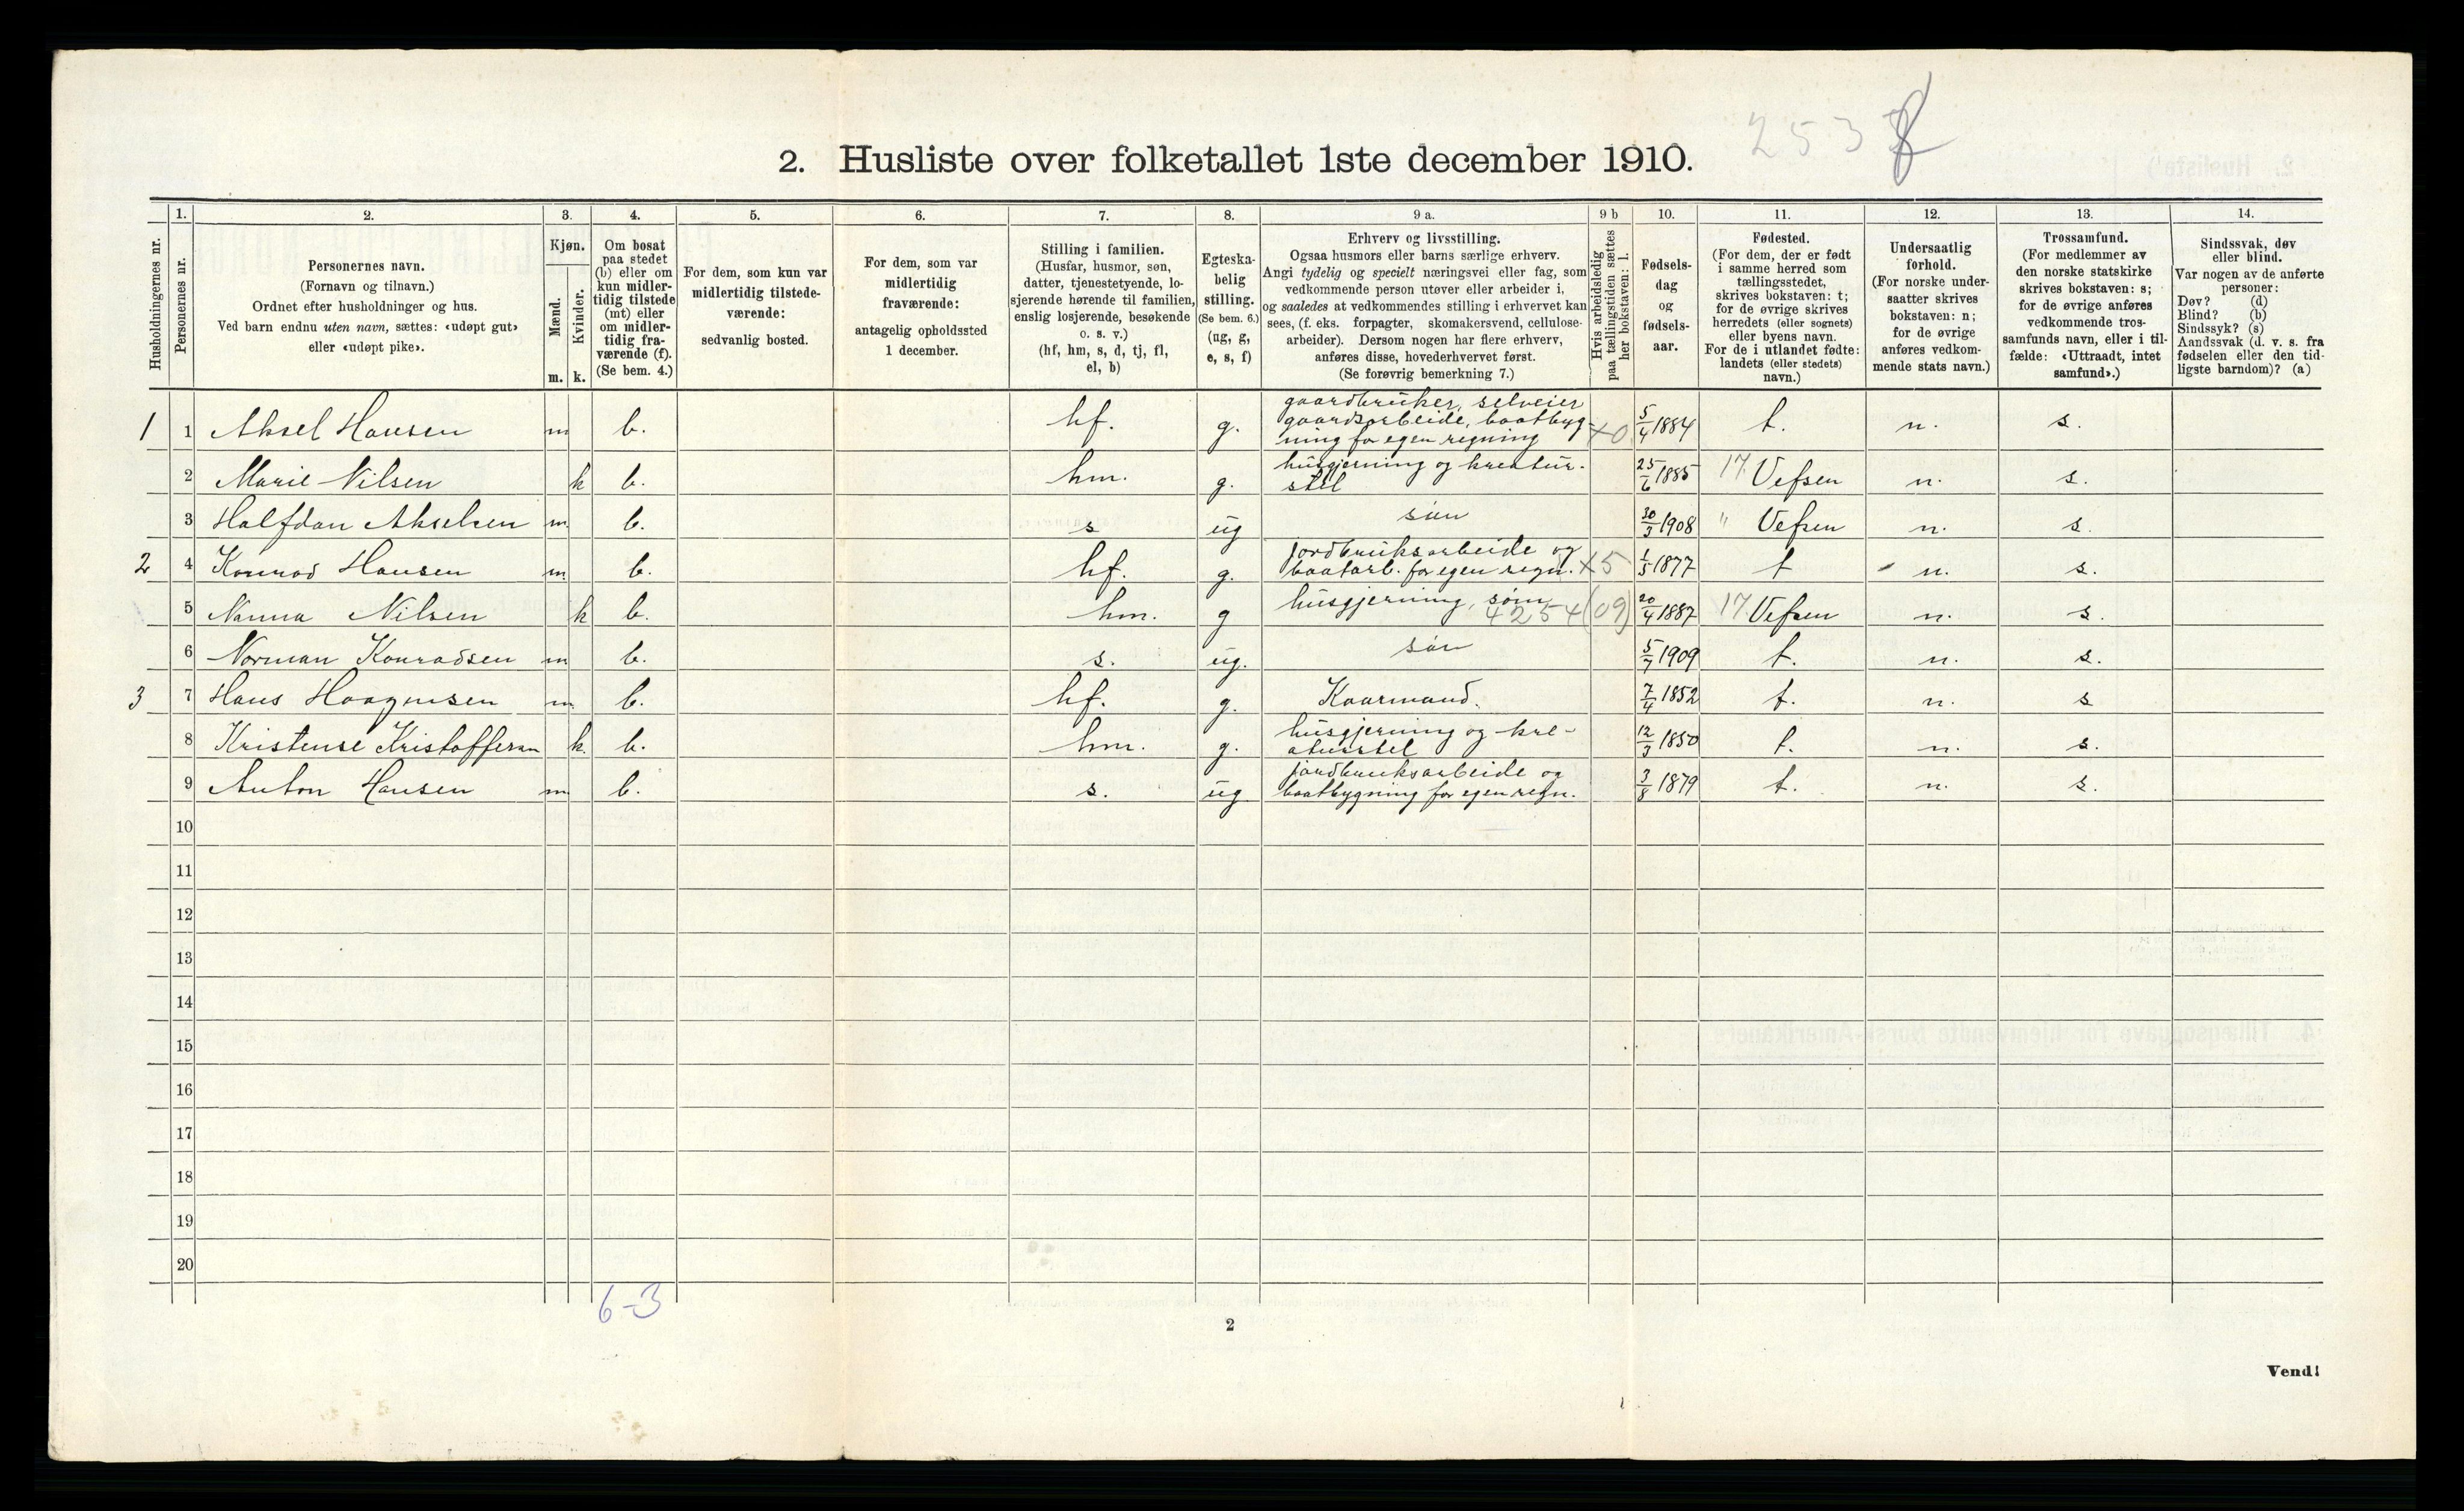 2. Husliste over folketallet 1ste december 1910.
253
Husholdningernes nr.
1.
Personernes nr.
2.
Personernes navn.
(Fornavn og tilnavn.)
Ordnet efter husholdninger og hus.
Ved barn endnu uten navn, sættes: «udøpt gut»
eller «udøpt pike».
3.
Kjøn.
Mænd.
Kvinder.
m. k.
4.
Om bosat
paa stedet
(b) eller om
kun midler-
tidig tilstede
(mt) eller
om midler-
tidig fra-
værende (f).
(Se bem. 4.)
5.
For dem, som kun var
midlertidig tilstede-
værende:
sedvanlig bosted.
6.
For dem, som var
midlertidig
fraværende:
antagelig opholdssted
1 december.
7.
Stilling i familien.
(Husfar, husmor, søn,
datter, tjenestetyende, lo-
sjerende hørende til familien,
enslig losjerende, besøkende
o. s. v.)
(hf, hm, s, d, tj, fl,
el, b)
8.
Egteska-
belig
stilling.
(Se bem. 6.)
(ug, g,
e, s, f)
9 a.
Erhverv og livsstilling.
Ogsaa husmors eller barns særlige erhverv.
Angi tydelig og specielt næringsvei eller fag, som
vedkommende person utøver eller arbeider i,
og saaledes at vedkommendes stilling i erhvervet kan
sees, (f. eks. forpagter, skomakersvend, cellulose-
arbeider). Dersom nogen har flere erhverv,
anføres disse, hovederhvervet først.
(Se forøvrig bemerkning 7.)
9 b
Hvis arbeidsledig
paa tællingstiden sættes
her bokstaven: l.
10.
Fødsels-
dag
og
fødsels-
aar.
11.
Fødested.
(For dem, der er født
i samme herred som
tællingsstedet,
skrives bokstaven: t;
for de øvrige skrives
herredets (eller sognets)
eller byens navn.
For de i utlandet fødte:
landets (eller stedets)
navn.)
12.
Undersaatlig
forhold.
(For norske under-
saatter skrives
bokstaven: n;
for de øvrige
anføres vedkom-
mende stats navn.)
13.
Trossamfund.
(For medlemmer av
den norske statskirke
skrives bokstaven: s;
for de øvrige anføres
vedkommende tros-
samfunds navn, eller i til-
fælde: «Uttraadt, intet
samfund».)
14.
Sindssvak, døv
eller blind.
Var nogen av de anførte
personer:
Døv? (d)
Blind? (b)
Sindssyk? (s)
Aandssvak (d. v. s. fra
fødselen eller den tid-
ligste barndom)? (a)
1 1 Aksel Hansen m b. hf. g. gaardbruker, selveier
gaardsarbeide, baatbyg-
ning for egen regning x0 5/4 1884 t. n. s.
2 Marie Nilsen k b. hm. g. husgjerning og kreatur-
stel 25/6 1885 17. Vefsen n. s.
3 Halfdan Akselsen m. b. s ug søn 30/3 1908 " Vefsen n. s.
2 4 Konrad Hansen m. b. hf. g. jordbruksarbeide og
baatarb. for egen regn. x5 1/5 1877 t n. s.
5 Nanna Nilsen k b. hm. g husgjerning, søm
4254 (09) 20/4 1887 17. Vefsen n. s.
6 Norman Konradsen m b. s. ug. søn 5/7 1909 t. n. s.
3 7 Hans Haagensen m. b. hf. g. Kaarmand. 7/4 1852 t. n. s
8 Kristense Kristoffersen k. b. hm. g. husgjerning og kre-
aturstel 12/3 1850 t. n. s.
9 Anton Hansen m b. s. ug jordbruksarbeide og
baatbygning for egen regn. 3/8 1879 t. n. s.
10
11
12
13
14
15
16
17
18
19
20
6-3
2
Vend!